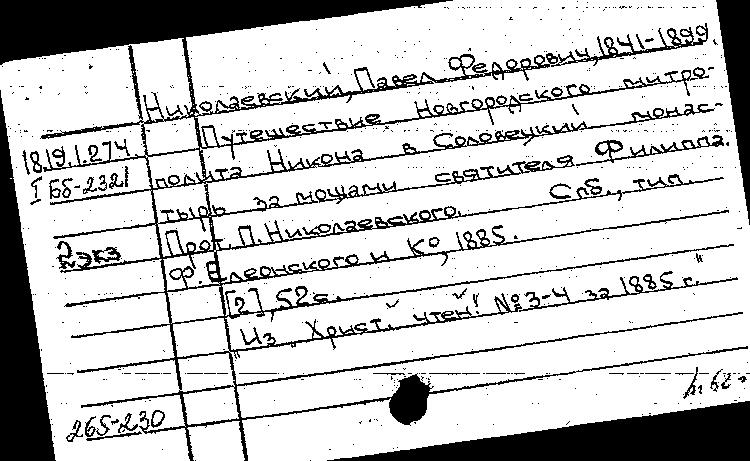 Николаевский, Павел Федорович, 1841-1899.
Путешествие Новгородского митро-
18.19.1.274. полита Никона в Соловецкий монас-
I Бб-2321 тырь за мощами святителя Филиппа.
Прот. П. Николаевского. СПб., тип.
2 экз Ф. Елеонского и К°, 1885.
[2], 52 с.
"Из „Христ. чтен." №3-4 за 1885 г."
265-230